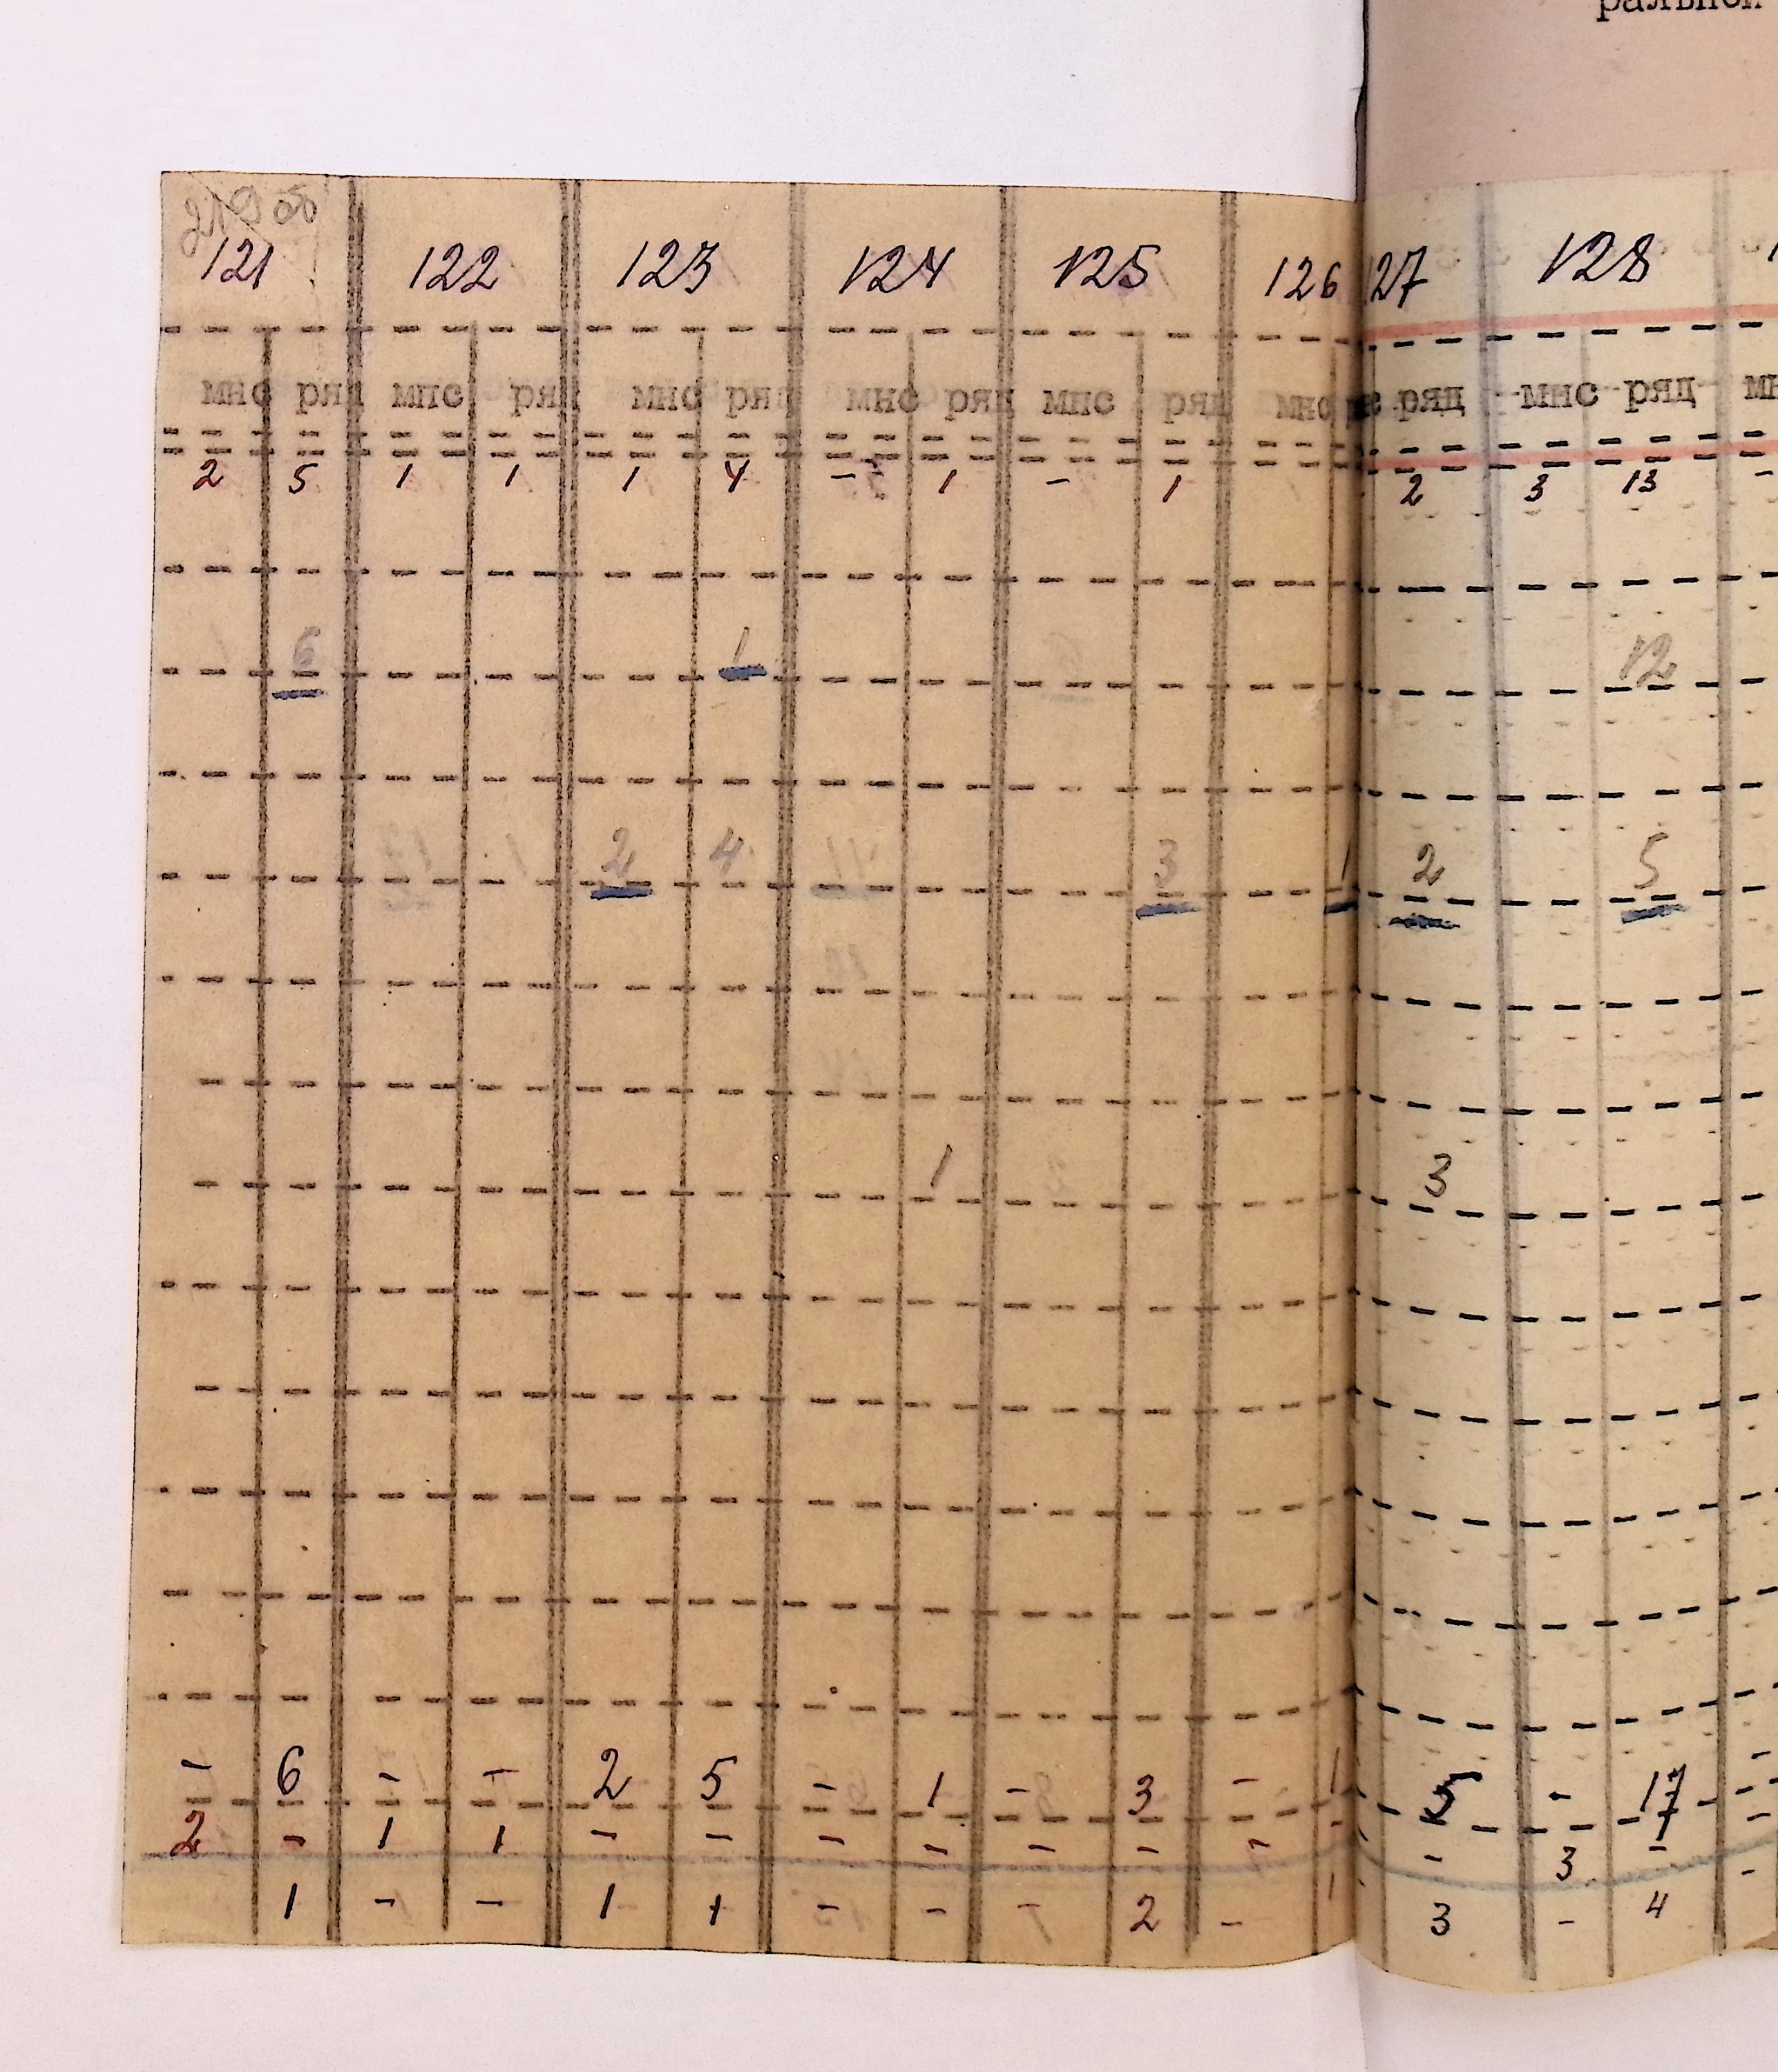 ральной
121 122 123 124 125 126 27 128
мнс ряд мнс ряд мнс ряд мнс ряд мнс ряд мнс ряд мнс ряд мн
2 5 1 1 1 4 - 1 - 1 2 3 13 -
6 1 12
2 4 3 1 2 5
1 3
- 6 - - 2 5 - 1 - 3 - 1 5 - 17 -
2 - 1 1 - - - - - - - - - 3 - -
1 - - 1 1 - - - 2 - 1 3 - 4 -